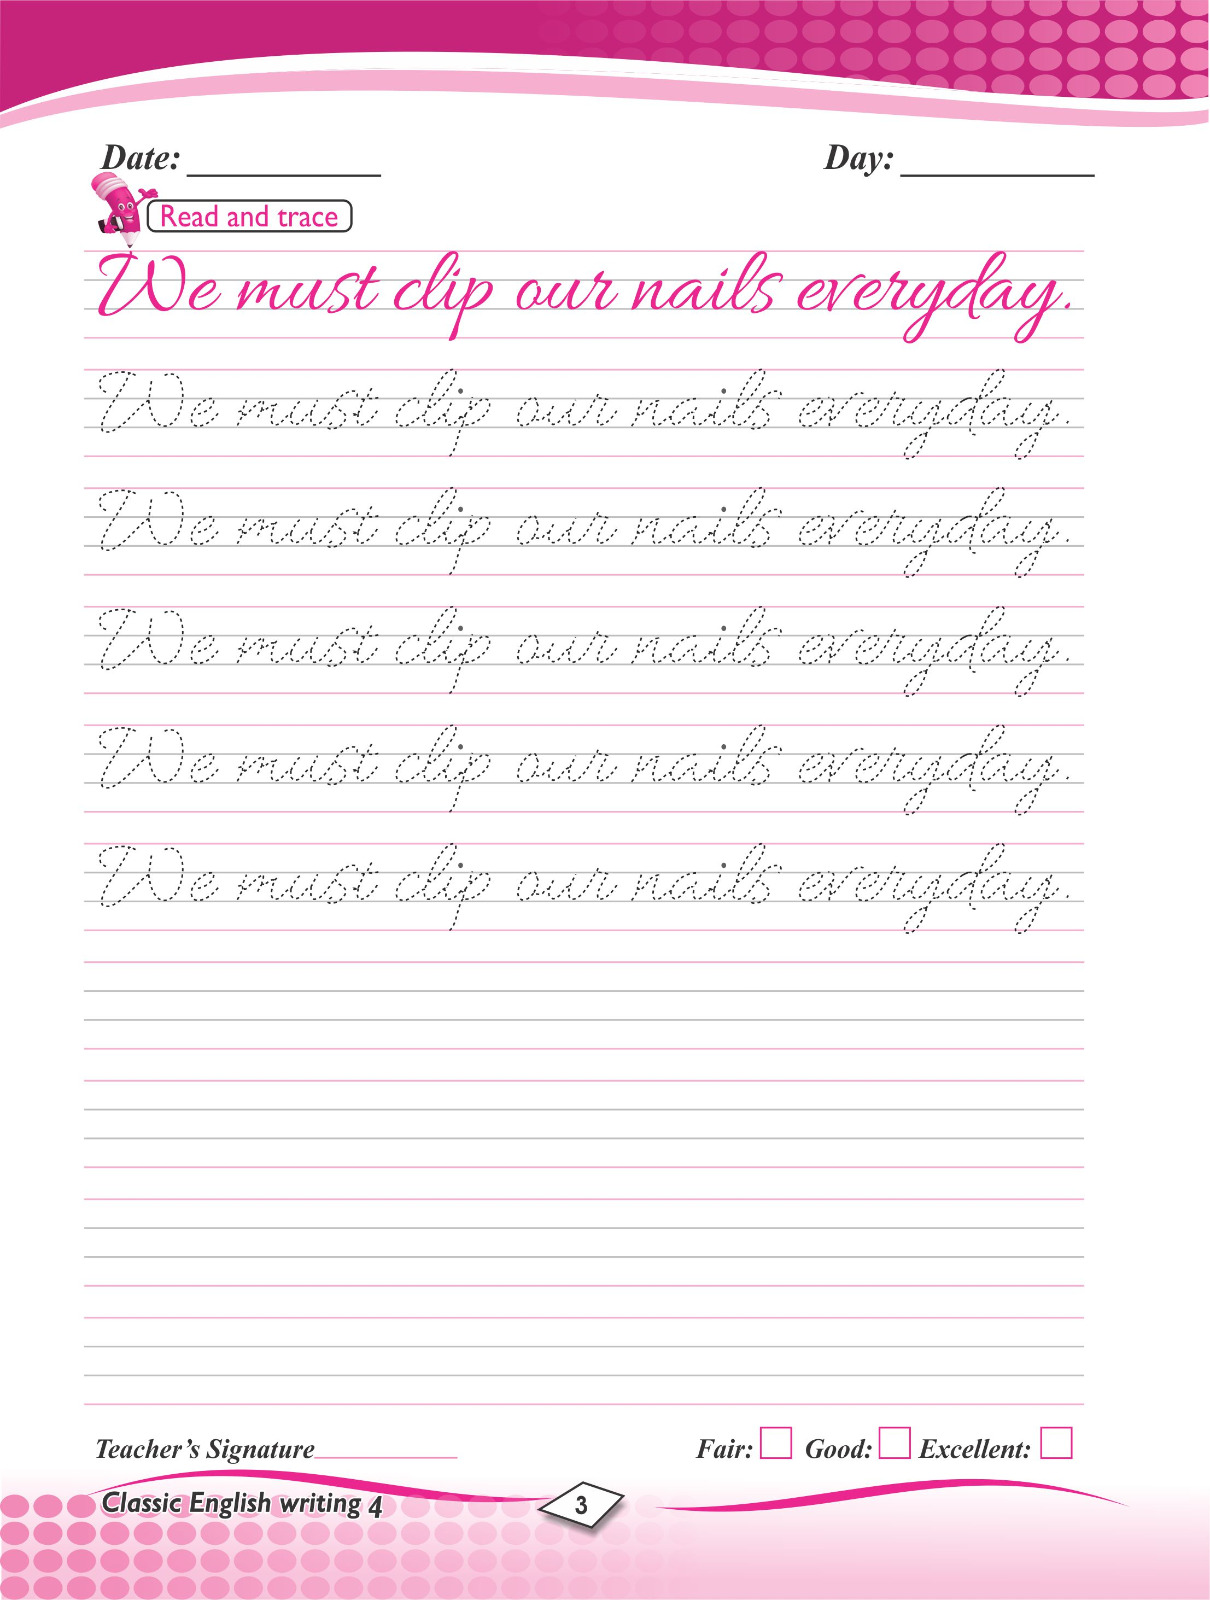 Date: ____________ Day: ____________
Read and trace
We must clip our nails everyday.
We must clip our nails everyday.
We must clip our nails everyday.
We must clip our nails everyday.
We must clip our nails everyday.
We must clip our nails everyday.
Teacher's Signature__________ Fair: Good: Excellent:
Classic English writing 4 3